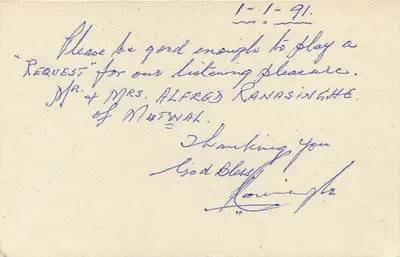 1-1-91.
Please be good enough to play a
"REQUEST" for our listening pleasure.
Mr. & Mrs. ALFRED RANASINGHE.
of MUTWAL.
Thanking you
God Bless